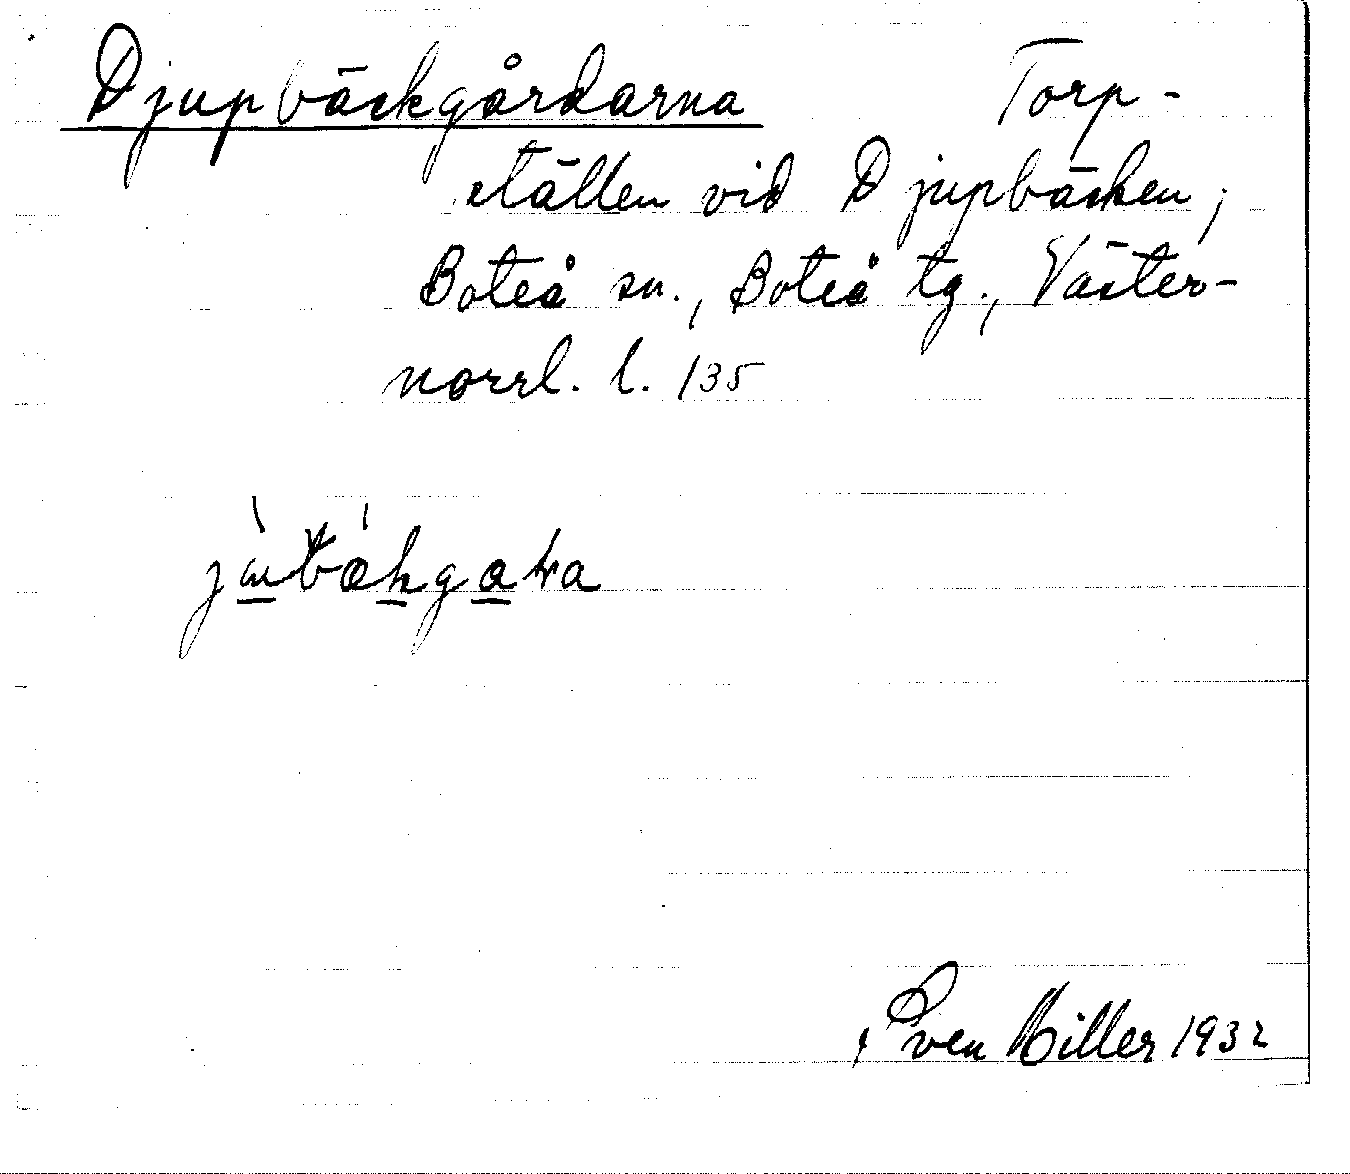 Djupbäckgårdarna Torp-
ställen vid Djupbäcken;
Boteå sn., Boteå tg., Väster-
norrl. l. 135
Sven Hiller 1932